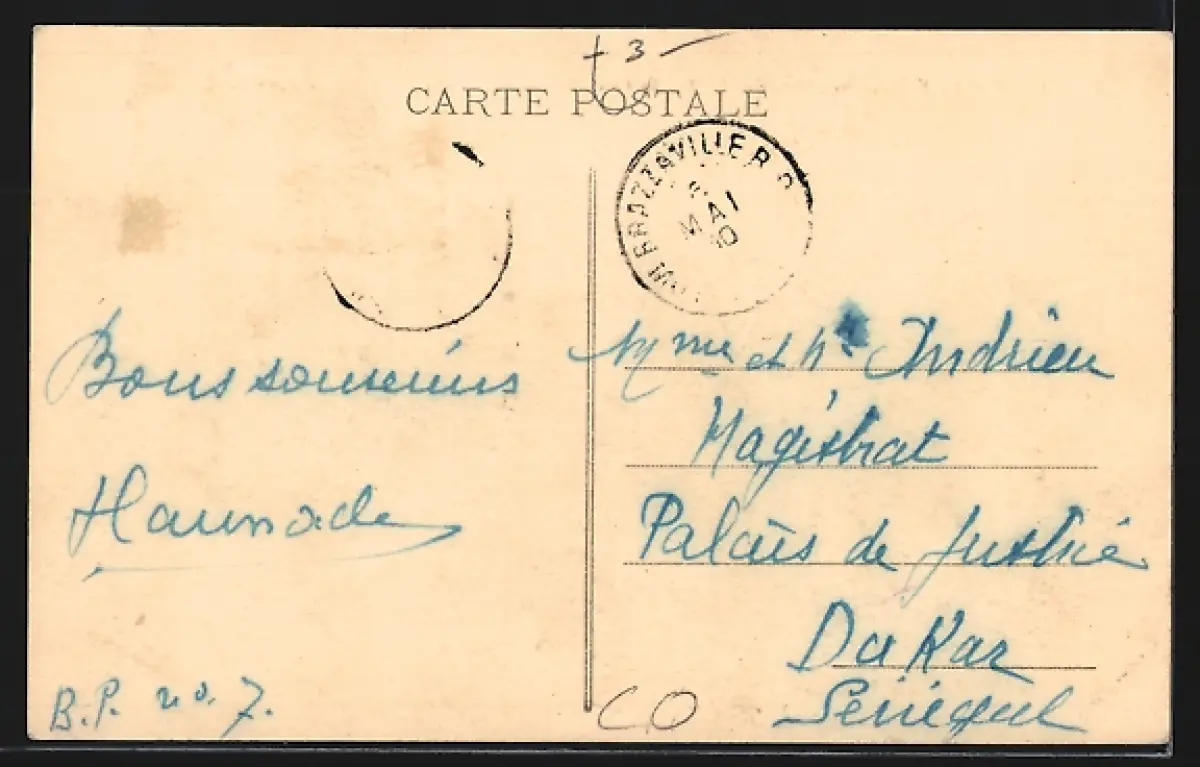 + 3 -
CARTE POSTALE
BRAZZAVILLE R.P.
MAI
Bons souvenirs
B.P. no. 7.
Mme et Mr Andrieu
Magistrat
Palais de Justice
Dakar
Sénégal
CO